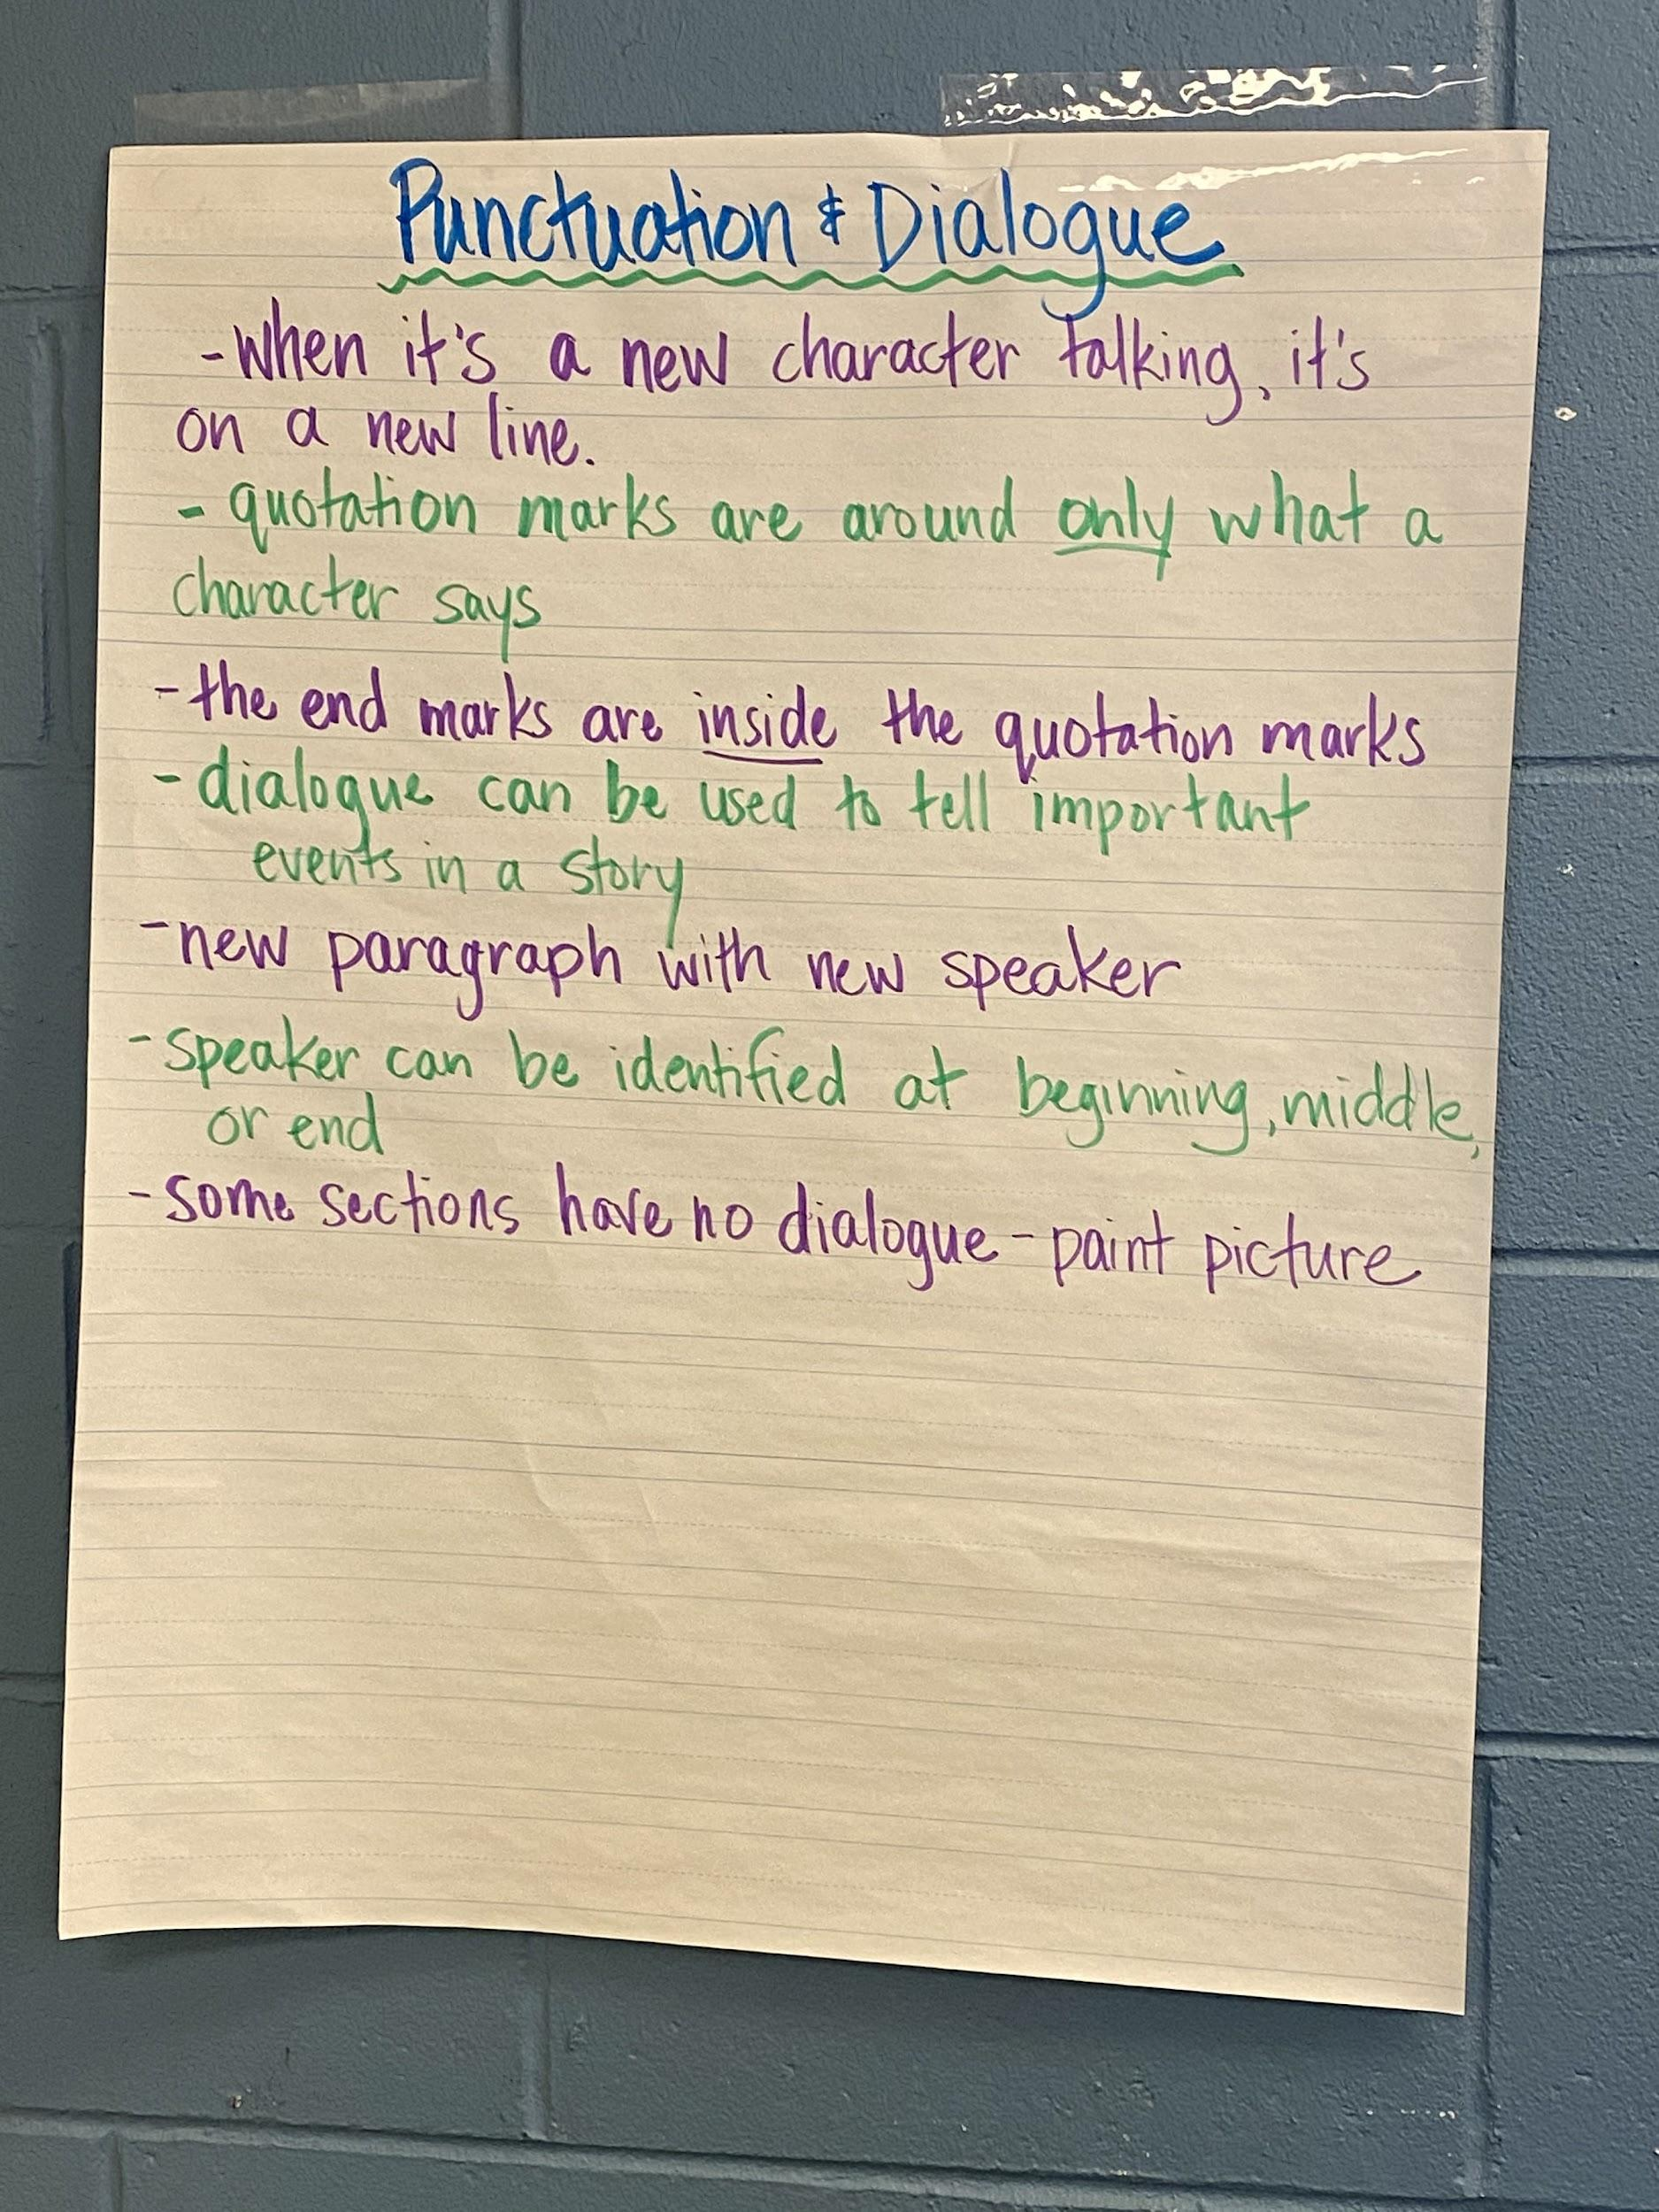 Punctuation & Dialogue
- When it's a new character talking, it's
on a new line.
- quotation marks are around only what a
character says
- the end marks are inside the quotation marks
- dialogue can be used to tell important
events in a story
- new paragraph with new speaker
- speaker can be identified at beginning, middle,
or end
- some sections have no dialogue - paint picture